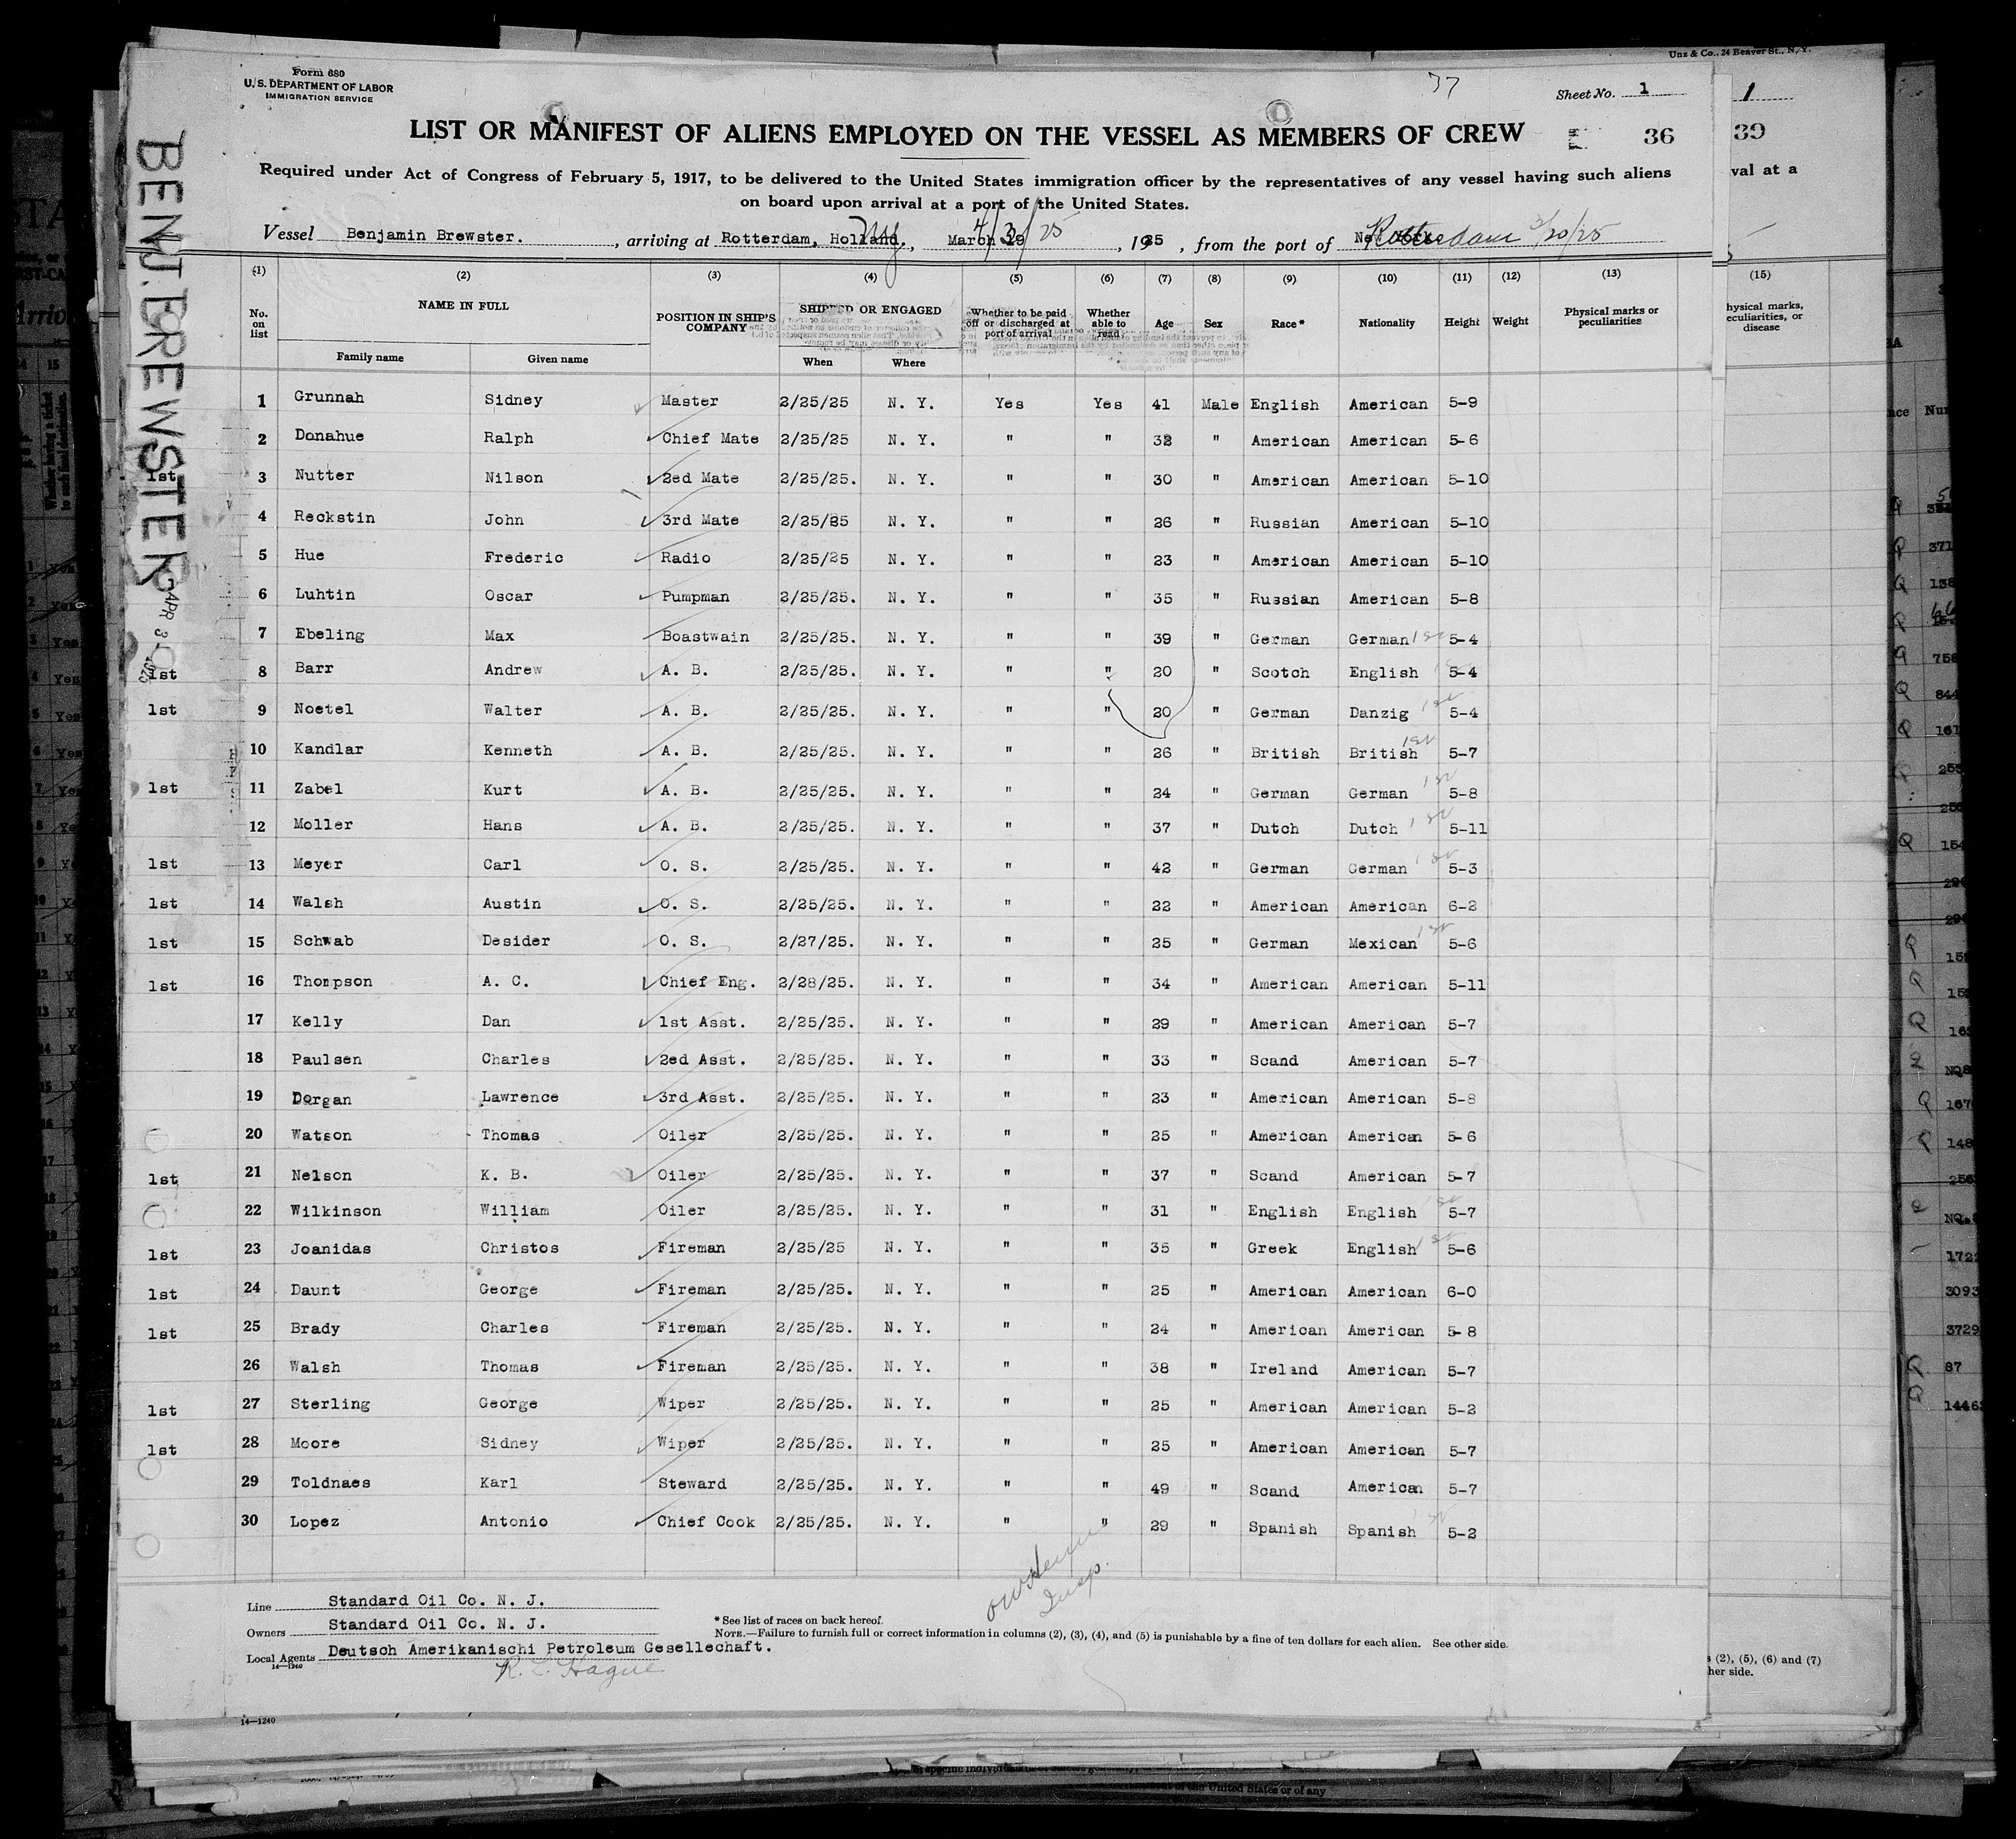 Unz & Co., 24 Beaver St., N. Y.
Form 680
U. S. DEPARTMENT OF LABOR
IMMIGRATION SERVICE
37
Sheet No. 1
1
LIST OR MANIFEST OF ALIENS EMPLOYED ON THE VESSEL AS MEMBERS OF CREW
36
39
Required under Act of Congress of February 5, 1917, to be delivered to the United States immigration officer by the representatives of any vessel having such aliens
on board upon arrival at a port of the United States.
val at a
Vessel Benjamin Brewster. , arriving at Rotterdam, Holland. NY , March 19 4/3/25 , 1925 , from the port of Rotterdam 3/20/25
BENJ. BREWSTER
APR 3 1925
(1) (2) (3) (4) (5) (6) (7) (8) (9) (10) (11) (12) (13) (15)
No. on list NAME IN FULL POSITION IN SHIP'S COMPANY SHIPPED OR ENGAGED Whether to be paid off or discharged at port of arrival Whether able to read Age Sex Race* Nationality Height Weight Physical marks or peculiarities
hysical marks, eculiarities, or disease
Family name Given name When Where
1 Grunnah Sidney Master 2/25/25 N. Y. Yes Yes 41 Male English American 5-9
2 Donahue Ralph Chief Mate 2/25/25 N. Y. " " 32 " American American 5-6
1st 3 Nutter Nilson 2ed Mate 2/25/25. N. Y. " " 30 " American American 5-10
4 Reckstin John 3rd Mate 2/25/25 N. Y. " " 26 " Russian American 5-10
5 Hue Frederic Radio 2/25/25 N. Y. " " 23 " American American 5-10
6 Luhtin Oscar Pumpman 2/25/25. N. Y. " " 35 " Russian American 5-8
7 Ebeling Max Boastwain 2/25/25. N. Y. " " 39 " German German 1st 5-4
1st 8 Barr Andrew A. B. 2/25/25. N. Y. " " 20 " Scotch English 1st 5-4
1st 9 Noetel Walter A. B. 2/25/25. N. Y. " " 20 " German Danzig 1st 5-4
10 Kandlar Kenneth A. B. 2/25/25. N. Y. " " 26 " British British 1st 5-7
1st 11 Zabel Kurt A. B. 2/25/25. N. Y. " " 24 " German German 1st 5-8
12 Moller Hans A. B. 2/25/25. N. Y. " " 37 " Dutch Dutch 1st 5-11
1st 13 Meyer Carl O. S. 2/25/25. N. Y. " " 42 " German German 1st 5-3
1st 14 Walsh Austin O. S. 2/25/25. N. Y. " " 22 " American American 6-2
1st 15 Schwab Desider O. S. 2/27/25. N. Y. " " 25 " German Mexican 1st 5-6
1st 16 Thompson A. C. Chief Eng. 2/28/25. N. Y. " " 34 " American American 5-11
17 Kelly Dan 1st Asst. 2/25/25. N. Y. " " 29 " American American 5-7
18 Paulsen Charles 2ed Asst. 2/25/25. N. Y. " " 33 " Scand American 5-7
19 Dorgan Lawrence 3rd Asst. 2/25/25. N. Y. " " 23 " American American 5-8
20 Watson Thomas Oiler 2/25/25. N. Y. " " 25 " American American 5-6
1st 21 Nelson K. B. Oiler 2/25/25. N. Y. " " 37 " Scand American 5-7
22 Wilkinson William Oiler 2/25/25. N. Y. " " 31 " English English 1st 5-7
1st 23 Joanidas Christos Fireman 2/25/25 N. Y. " " 35 " Greek English 1st 5-6
1st 24 Daunt George Fireman 2/25/25. N. Y. " " 25 " American American 6-0
1st 25 Brady Charles Fireman 2/25/25. N. Y. " " 24 " American American 5-8
26 Walsh Thomas Fireman 2/25/25. N. Y. " " 38 " Ireland American 5-7
1st 27 Sterling George Wiper 2/25/25. N. Y. " " 25 " American American 5-2
1st 28 Moore Sidney Wiper 2/25/25. N. Y. " " 25 " American American 5-7
29 Toldnaes Karl Steward 2/25/25. N. Y. " " 49 " Scand American 5-7
30 Lopez Antonio Chief Cook 2/25/25. N. Y. " " 29 " Spanish Spanish 1st 5-2
Insp.
Line Standard Oil Co. N. J.
Owners Standard Oil Co. N. J.
Local Agents Deutsch Amerikanischi Petroleum Gesellechaft.
R. L. Hague
* See list of races on back hereof.
NOTE.—Failure to furnish full or correct information in columns (2), (3), (4), and (5) is punishable by a fine of ten dollars for each alien. See other side.
s (2), (5), (6) and (7)
her side.
14—1240
14—1240
of the United States or of any